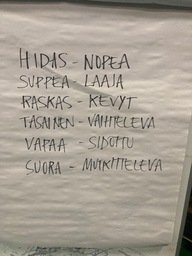 HIDAS - NOPEA
SUPPEA - LAAJA
RASKAS - KEVYT
TASAINEN - VAIHTELEVA
VAPAA - SIDOTTU
SUORA - MUTKITTELEVA